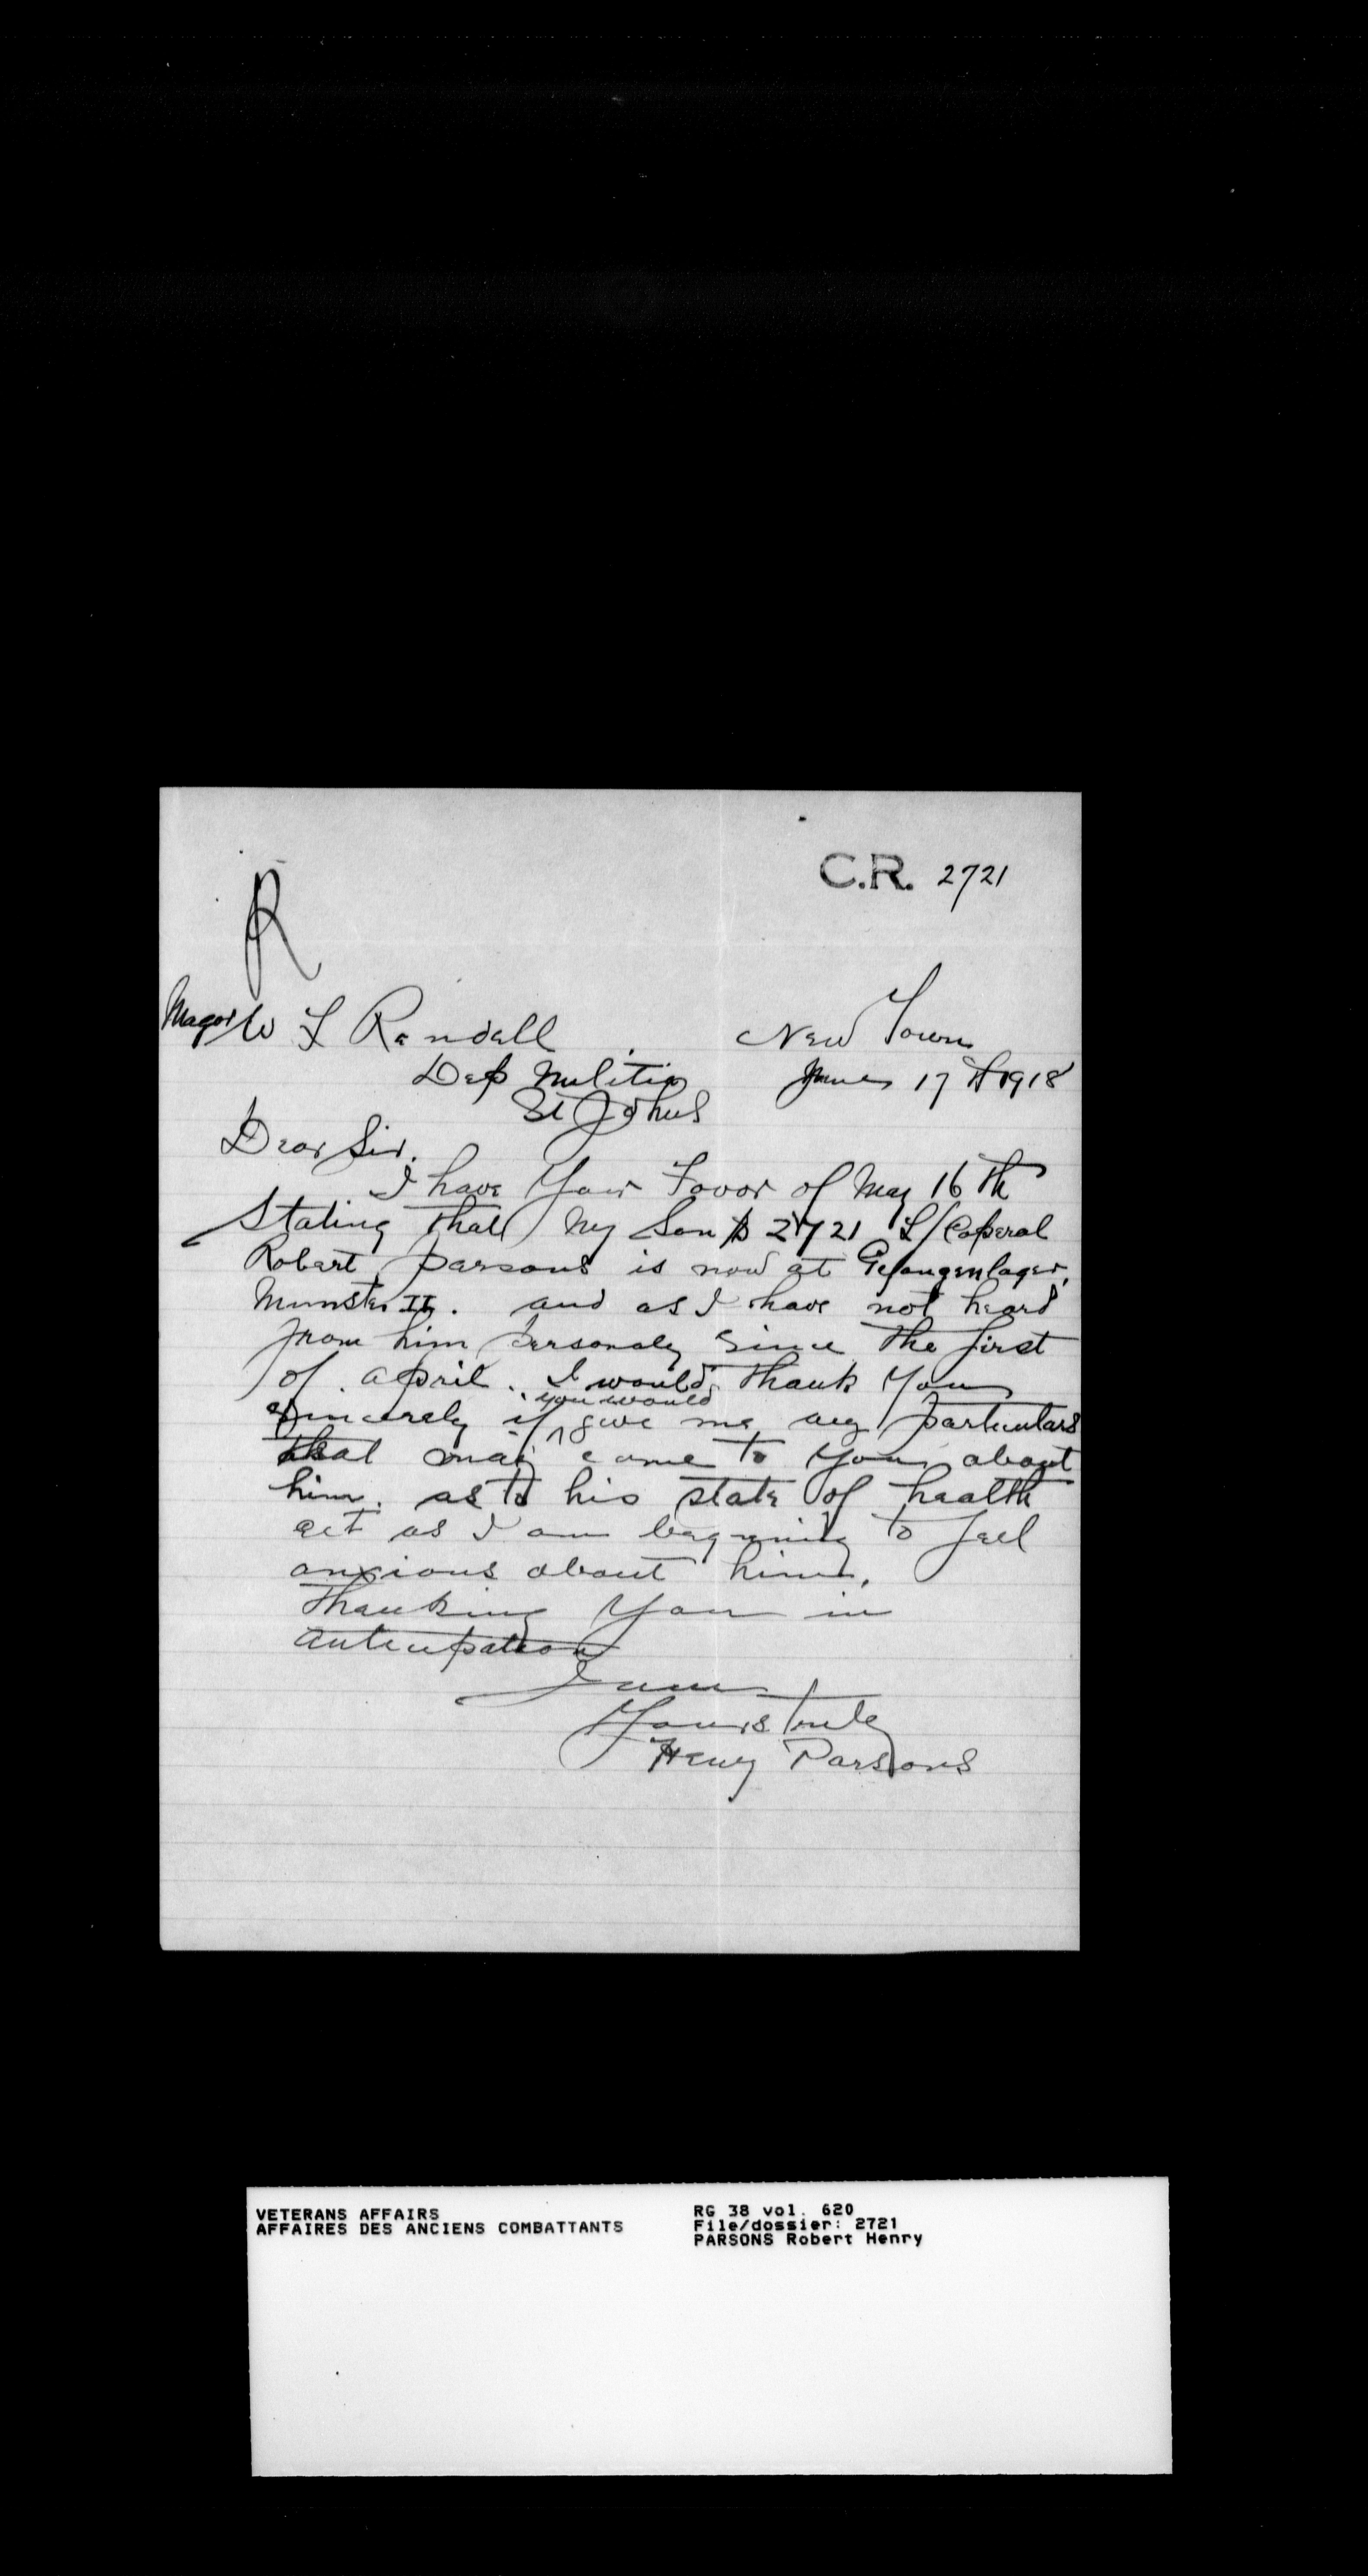 C.R. 2721
R
Magor W F Randall
New Town
Dep Militia
June 17th 1918
St Johns
Dear Sir.
I have Your Favor of May 16 th
Stating that My Son 2721 L/Coperal
Robert parsons is now at Gefangenlager,
Munster II. and as I have not heard
from him personaly since the first
of april. I would thank You
Sincerely if you would give me any particulars
that may come to You about
him. as to his state of health
ect as I am begnning to feel
anxious about him.
Thanking You in
anticipation
I am
Yours truly
Henry Parsons
VETERANS AFFAIRS
AFFAIRES DES ANCIENS COMBATTANTS
RG 38 vol. 620
File/dossier: 2721
PARSONS Robert Henry